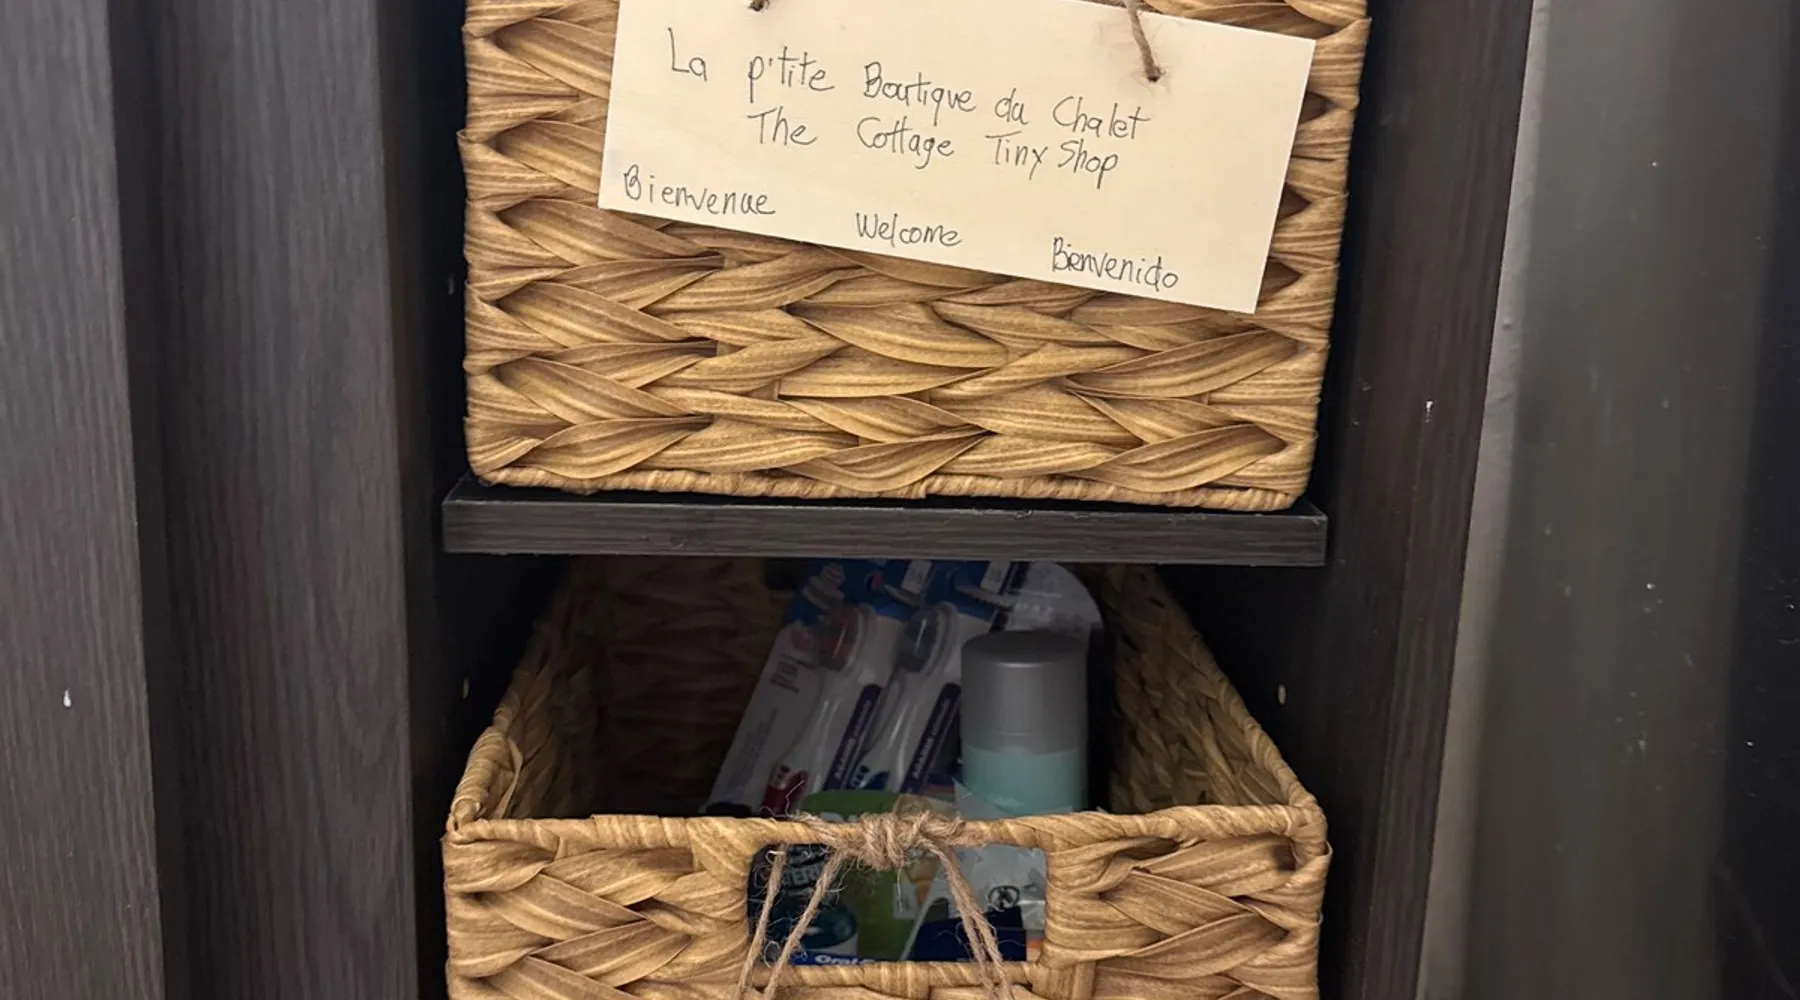 La p'tite Boutique du Chalet
The Cottage Tiny Shop
Bienvenue Welcome Bienvenido